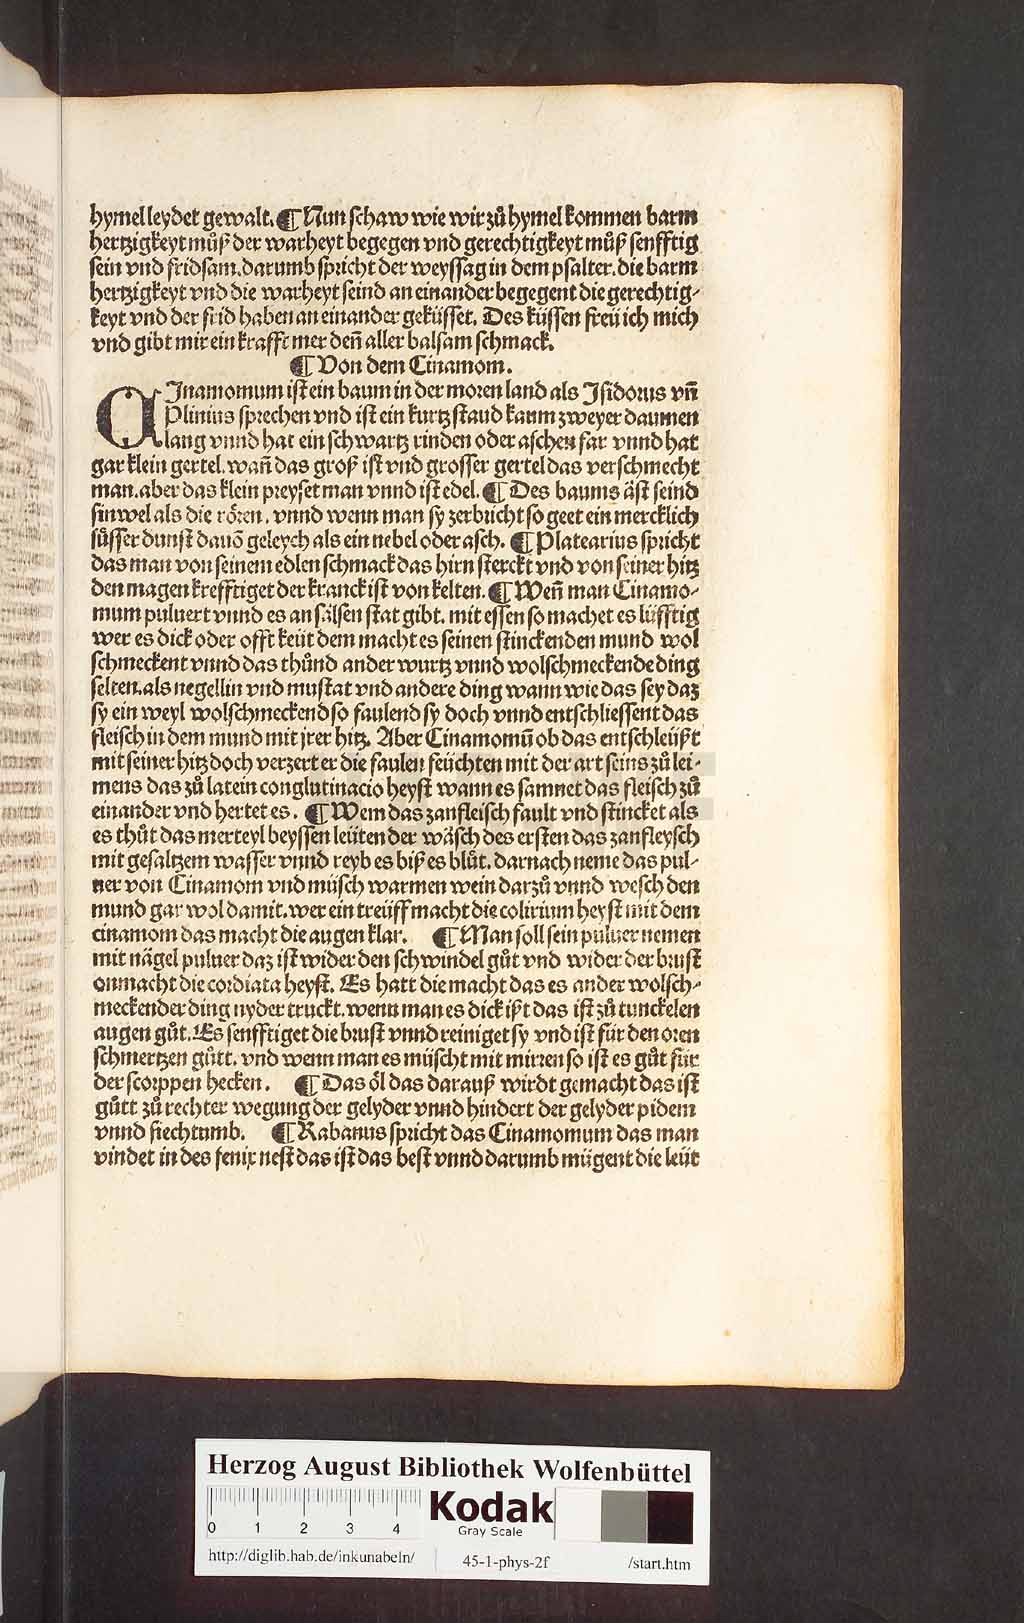 hymel leydet gewalt. ¶ Nun schaw wie wir zů hymel kommen barm
hertzigkeyt můß der warheyt begegen vnd gerechtigkeyt můß senfftig
sein vnd fridsam. darumb spricht der weyssag in dem psalter. die barm
hertzigkeyt vnd die warheyt seind an einander begegent die gerechtig-
keyt vnd der frid haben an einander geküsset. Des küssen freü ich mich
vnd gibt mir ein krafft mer deñ aller balsam schmack.
¶ Von dem Cinamom.
CInamomum ist ein baum in der moren land als Isidorus vñ
Plinius sprechen vnd ist ein kurtz staud kaum zweyer daumen
lang vnnd hat ein schwartz rinden oder aschen far vnnd hat
gar klein gertel. wañ das groß ist vnd grosser gertel das verschmecht
man. aber das klein preyset man vnnd ist edel. ¶ Des baums äst seind
sinwel als die rören. vnnd wenn man sy zerbricht so geet ein mercklich
süsser dunst dauõ geleych als ein nebel oder asch. ¶ Platearius spricht
das man von seinem edlen schmack das hirn sterckt vnd von seiner hitz
den magen krefftiget der kranck ist von kelten. ¶ Weñ man Cinamo-
mum puluert vnnd es an sälsen stat gibt. mit essen so machet es lüfftig
wer es dick oder offt keüt dem macht es seinen stinckenden mund wol
schmeckent vnnd das thůnd ander wurtz vnnd wolschmeckende ding
selten. als negellin vnd mustat vnd andere ding wann wie das sey daz
sy ein weyl wolschmeckend so faulend sy doch vnnd entschliessent das
fleisch in dem mund mit jrer hitz. Aber Cinamomũ ob das entschleüßt
mit seiner hitz doch verzert er die faulen feüchten mit der art seins zů lei-
mens das zů latein conglutinacio heyst wann es samnet das fleisch zů
einander vnd hertet es. ¶ Wem das zanfleisch fault vnd stincket als
es thůt das merteyl beyssen leüten der wäsch des ersten das zanfleysch
mit gesaltzem wasser vnnd reyb es biß es blůt. darnach neme das pul-
uer von Cinamom vnd müsch warmen wein darzů vnnd wesch den
mund gar wol damit. wer ein treüff macht die colirium heyst mit dem
cinamom das macht die augen klar. ¶ Man soll sein puluer nemen
mit nägel puluer daz ist wider den schwindel gůt vnd wider der brust
onmacht die cordiata heyst. Es hatt die macht das es ander wolsch-
meckender ding nyder truckt. wenn man es dick ißt das ist zů tunckelen
augen gůt. Es senfftiget die brust vnnd reiniget sy vnd ist für den oren
schmertzen gůtt. vnd wenn man es müscht mit mirren so ist es gůt für
der scorppen hecken. ¶ Das öl das darauß wirdt gemacht das ist
gůtt zů rechter wegung der gelyder vnnd hindert der gelyder pidem
vnnd siechtumb. ¶ Rabanus spricht das Cinamomum das man
vindet in des fenix nest das ist das best vnnd darumb mügent die leüt
Herzog August Bibliothek Wolfenbüttel
0 1 2 3 4 Kodak
Gray Scale
http://diglib.hab.de/inkunabeln/ 45-1-phys-2f /start.htm